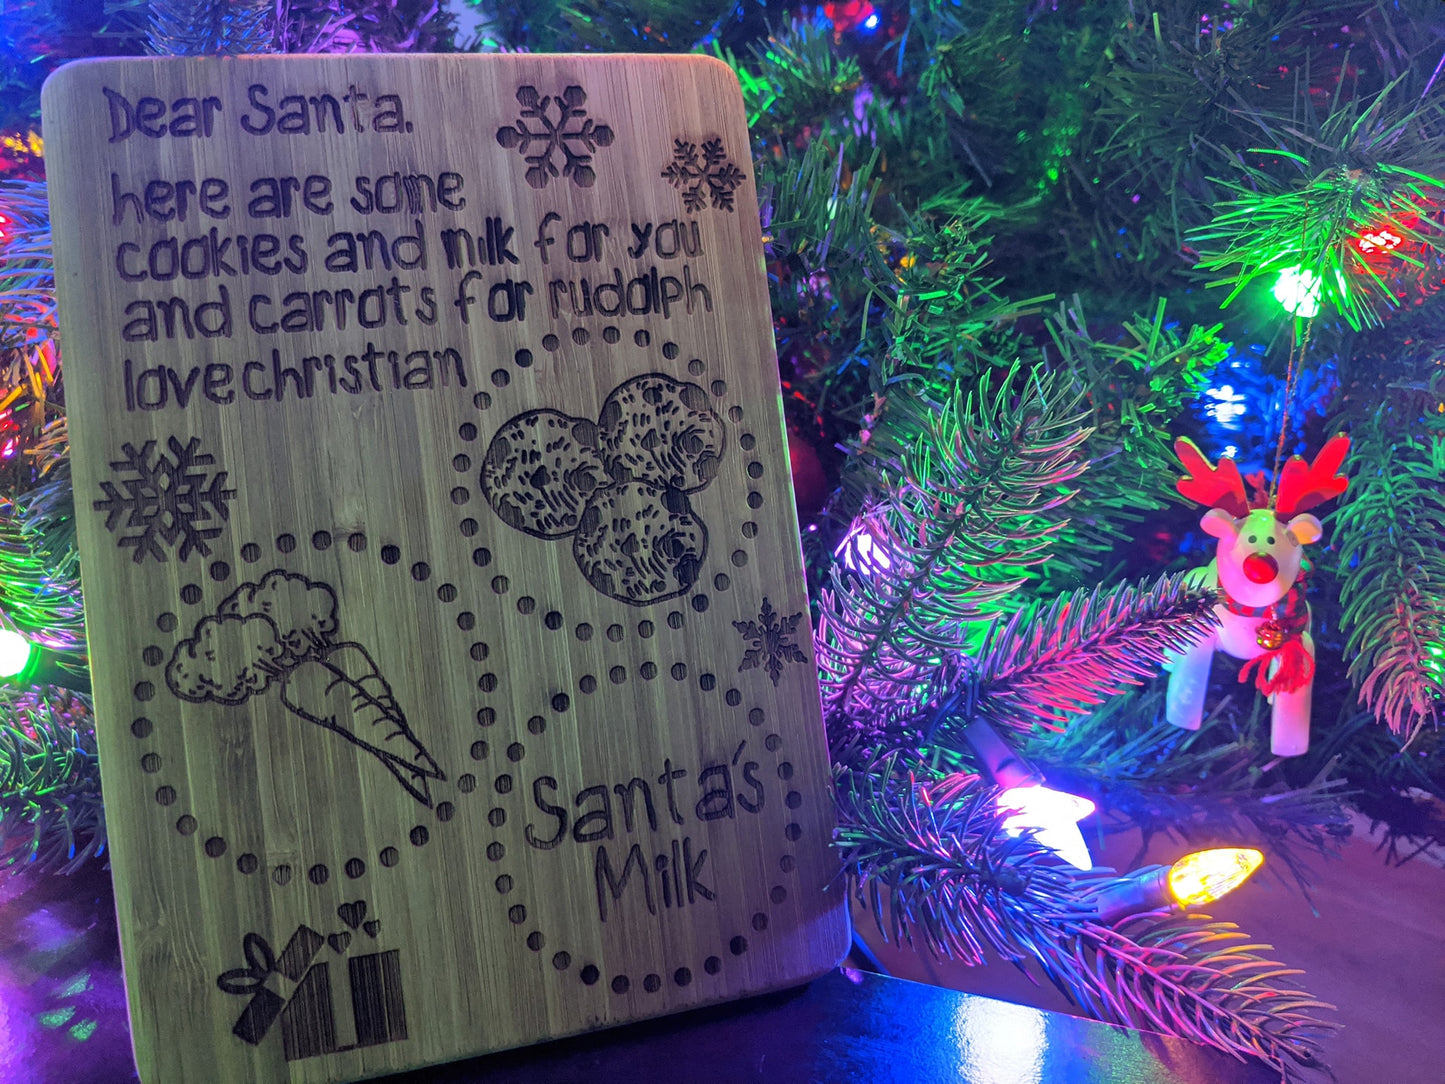 Dear Santa,
here are some
cookies and milk for you
and carrots for rudolph
love christian
Santa's
Milk